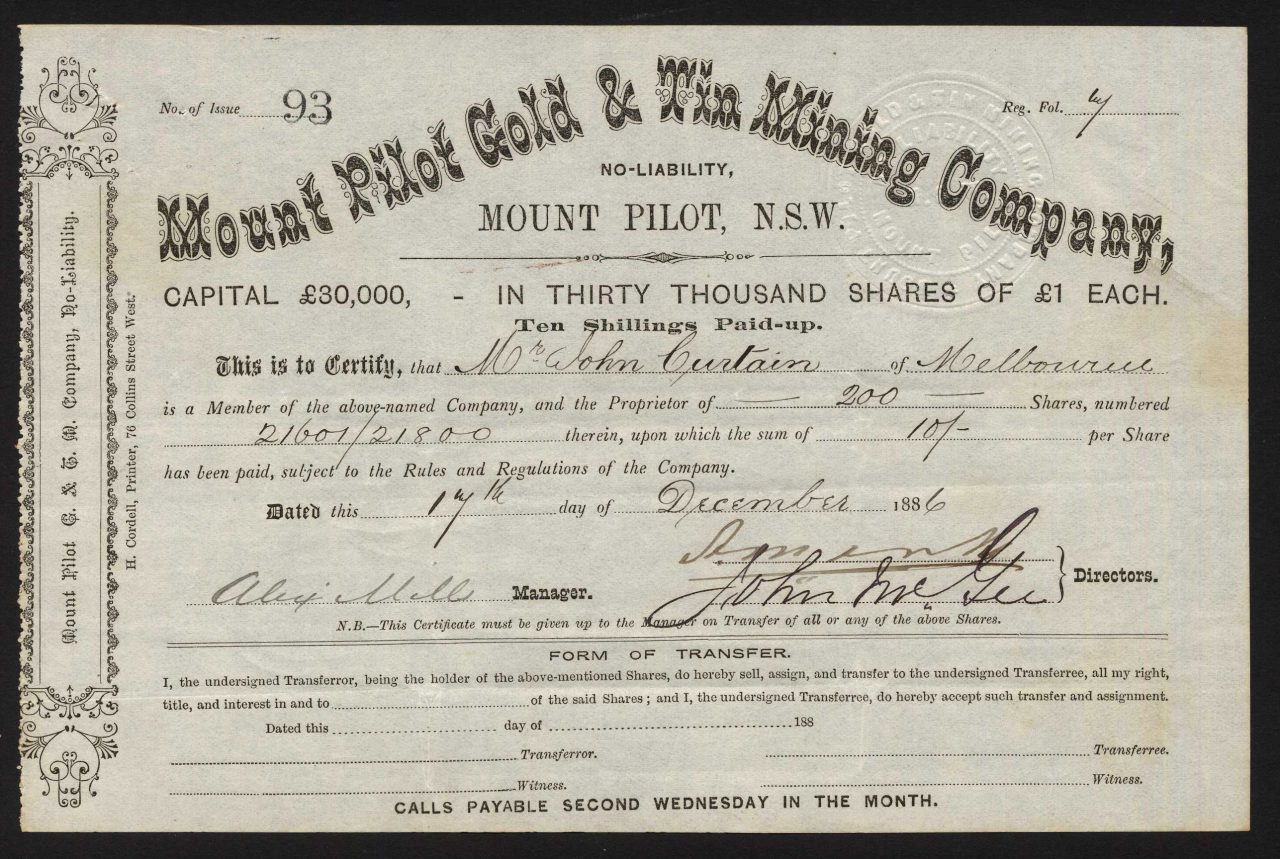 No. of Issue 93
Reg. Fol.
Mount Pilot Gold & Tin Mining Company,
NO-LIABILITY,
MOUNT PILOT, N.S.W.
CAPITAL £30,000, - IN THIRTY THOUSAND SHARES OF £1 EACH.
Ten Shillings Paid-up.
This is to Certify, that Mr John Curtain of Melbourne
is a Member of the above-named Company, and the Proprietor of — 200 — Shares, numbered
21601/21800 therein, upon which the sum of 10/- per Share
has been paid, subject to the Rules and Regulations of the Company.
Dated this 17th day of December 1886
John McGee
Directors.
Alex Mills Manager.
N.B.—This Certificate must be given up to the Manager on Transfer of all or any of the above Shares.
FORM OF TRANSFER.
I, the undersigned Transferror, being the holder of the above-mentioned Shares, do hereby sell, assign, and transfer to the undersigned Transferree, all my right,
title, and interest in and to of the said Shares ; and I, the undersigned Transferree, do hereby accept such transfer and assignment.
Dated this day of 188
Transferror. Transferree.
Witness. Witness.
CALLS PAYABLE SECOND WEDNESDAY IN THE MONTH.
Mount Pilot G. & T. M. Company, No-Liability.
H. Cordell, Printer, 76 Collins Street West.